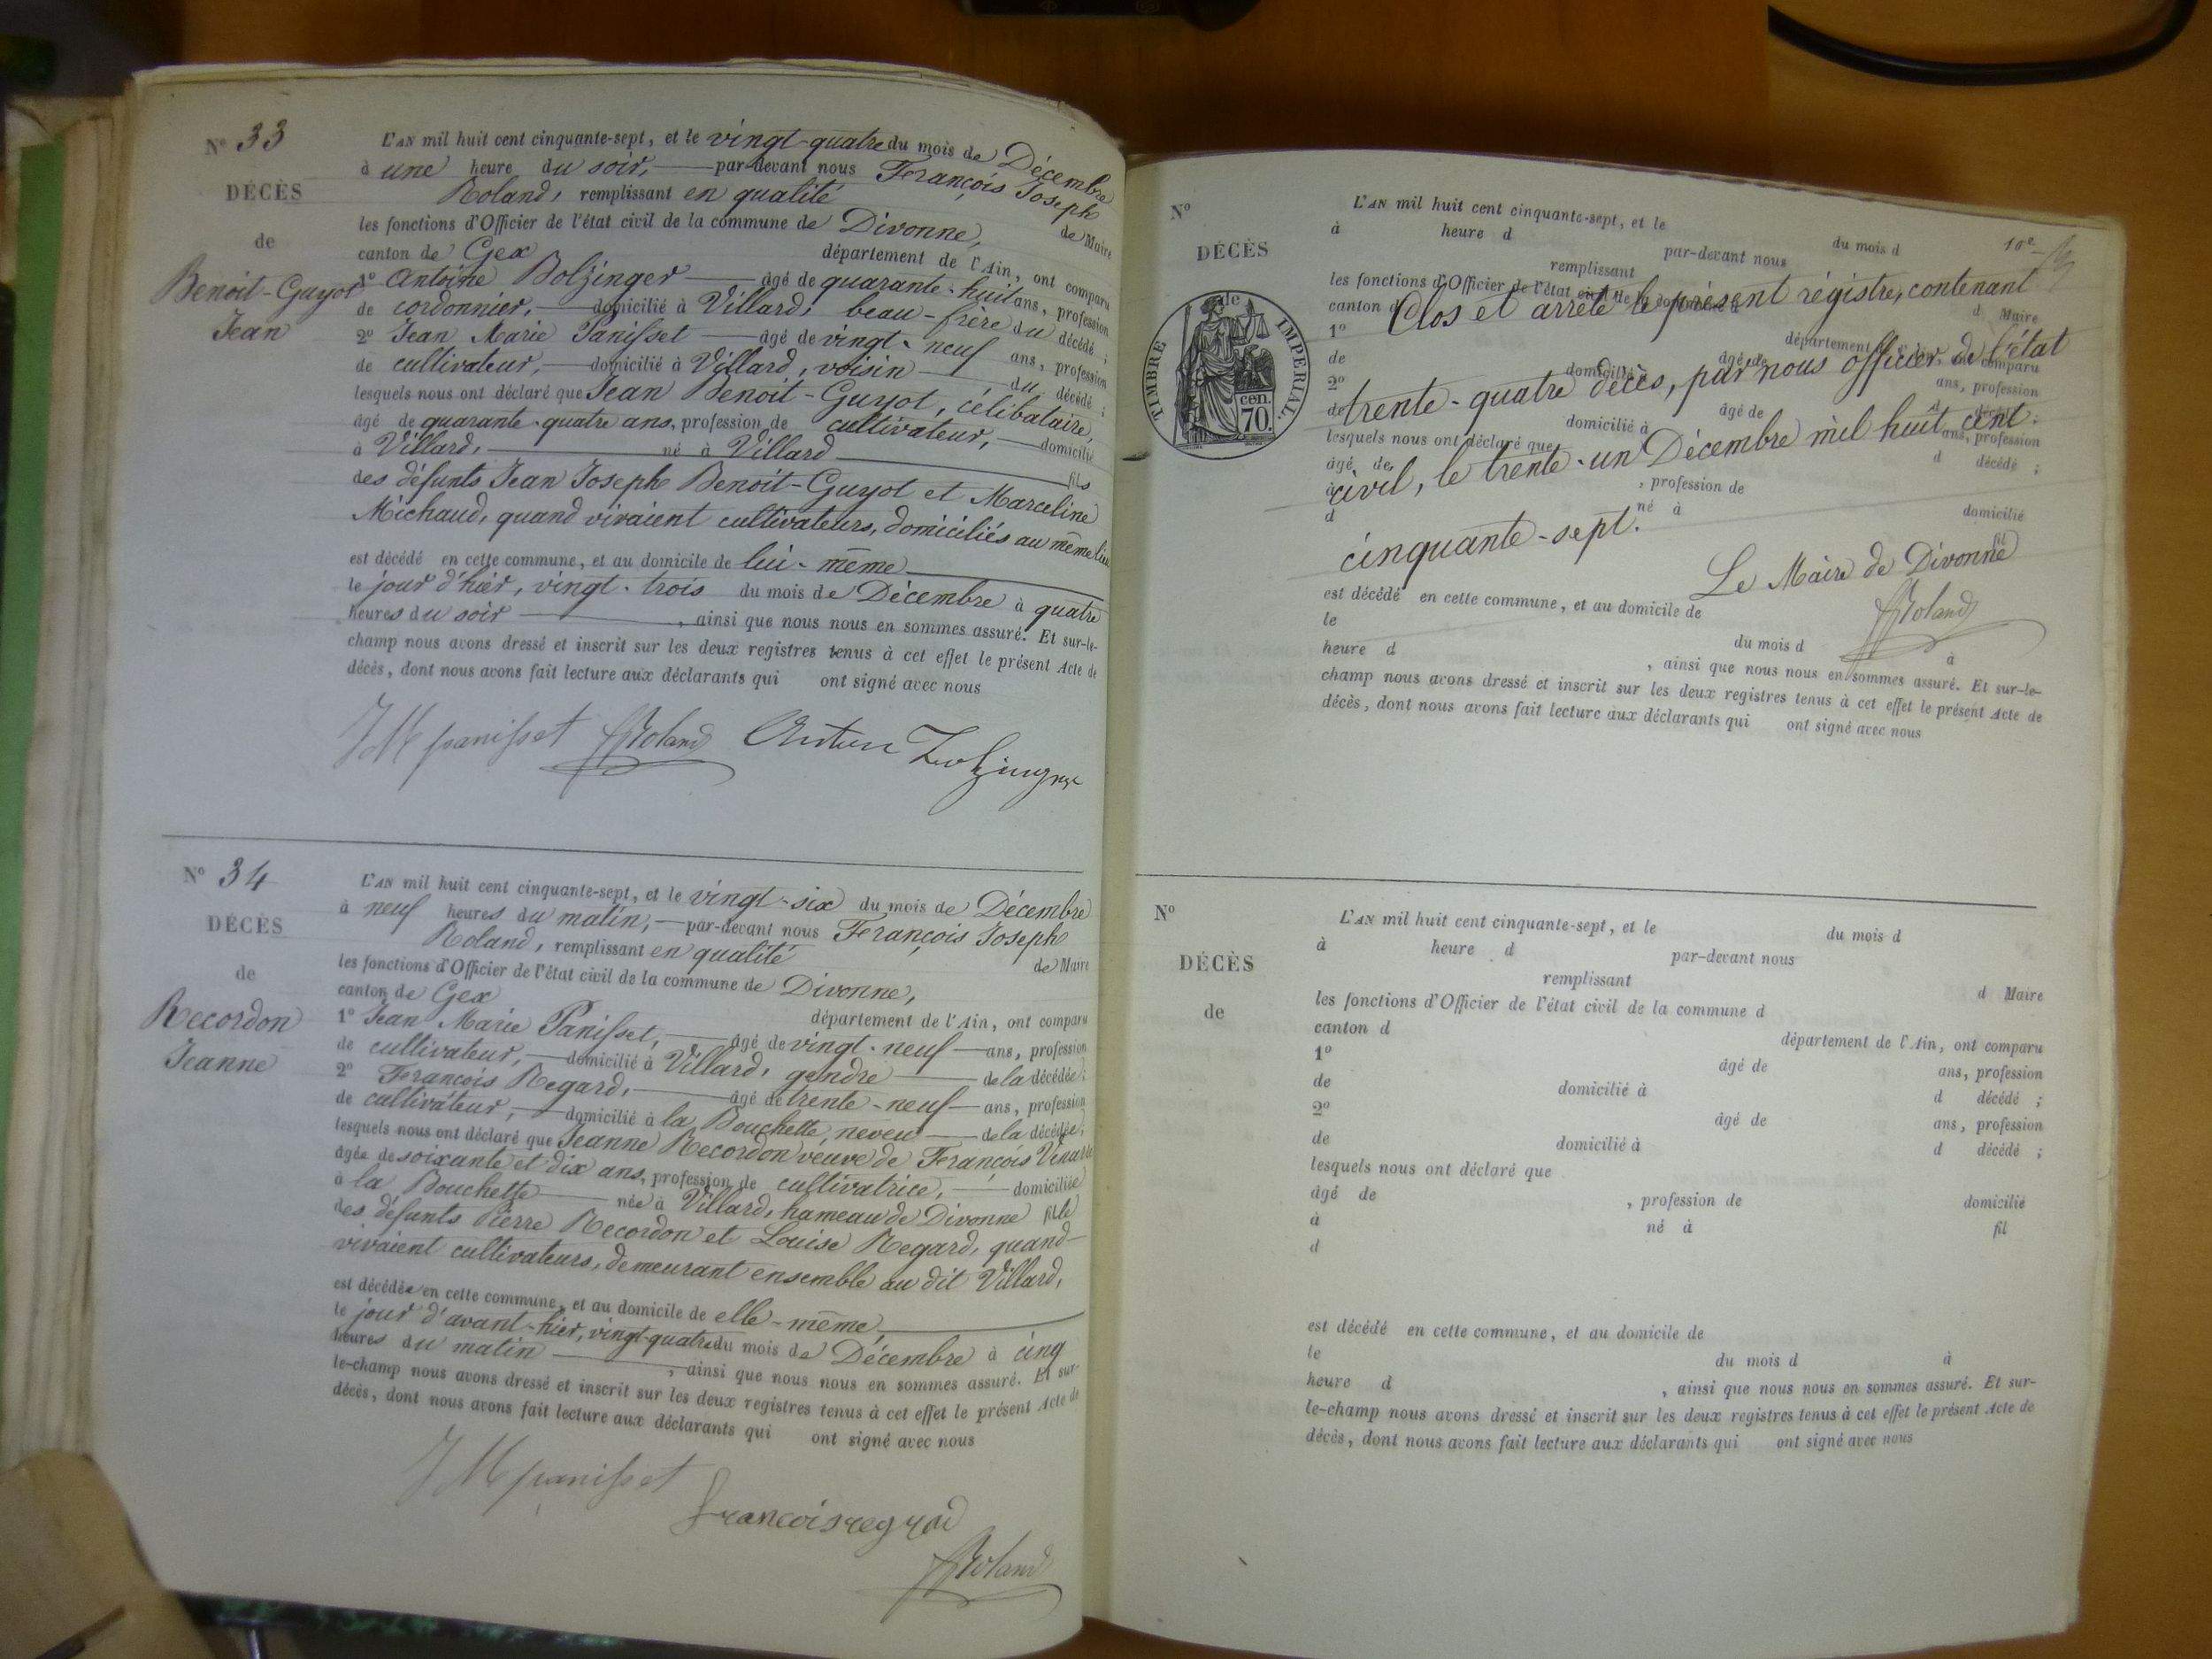 N° 33
DÉCÈS
de
Benoit-Guyot
Jean
L'AN mil huit cent cinquante-sept, et le vingt-quatre du mois de Décembre
à une heure du soir, par-devant nous François Joseph
Roland, remplissant en qualité de Maire
les fonctions d'Officier de l'état civil de la commune de Divonne,
canton de Gex département de l'Ain, ont comparu
1° Antoine Bolzinger âgé de quarante-huit ans, profession
de cordonnier, domicilié à Villard, beau-frère du décédé ;
2° Jean Marie Panisset âgé de vingt-neuf ans, profession
de cultivateur, domicilié à Villard, voisin du décédé ;
lesquels nous ont déclaré que Jean Benoit-Guyot, célibataire,
âgé de quarante-quatre ans, profession de cultivateur, domicilié
à Villard, né à Villard fils
des défunts Jean Joseph Benoit-Guyot et Marceline
Michaud, quand vivaient cultivateurs, domiciliés au même lieu
est décédé en cette commune, et au domicile de lui-même
le jour d'hier, vingt-trois du mois de Décembre à quatre
heures du soir, ainsi que nous nous en sommes assuré. Et sur-le-
champ nous avons dressé et inscrit sur les deux registres tenus à cet effet le présent Acte de
décès, dont nous avons fait lecture aux déclarants qui ont signé avec nous
JM panisset Roland
N° 34
DÉCÈS
de
Recordon
Jeanne
L'AN mil huit cent cinquante-sept, et le vingt-six du mois de Décembre
à neuf heures du matin, par-devant nous François Joseph
Roland, remplissant en qualité de Maire
les fonctions d'Officier de l'état civil de la commune de Divonne,
canton de Gex département de l'Ain, ont comparu
1° Jean Marie Panisset, âgé de vingt-neuf ans, profession
de cultivateur, domicilié à Villard, gendre de la décédée ;
2° François Regard, âgé de trente-neuf ans, profession
de cultivateur, domicilié à la Bouchette, neveu de la décédée ;
lesquels nous ont déclaré que Jeanne Recordon veuve de François
âgée de soixante et dix ans, profession de cultivatrice, domiciliée
à la Bouchette née à Villard, hameau de Divonne fille
des défunts Pierre Recordon et Louise Regard, quand
vivaient cultivateurs, demeurant ensemble au dit Villard,
est décédée en cette commune, et au domicile de elle-même,
le jour d'avant-hier, vingt-quatre du mois de Décembre à cinq
heures du matin, ainsi que nous nous en sommes assuré. Et sur-
le-champ nous avons dressé et inscrit sur les deux registres tenus à cet effet le présent Acte de
décès, dont nous avons fait lecture aux déclarants qui ont signé avec nous
JM panisset
Roland
N°
DÉCÈS
de
TIMBRE IMPÉRIAL.
cen.
70.
10e
L'AN mil huit cent cinquante-sept, et le du mois d
à heure d par-devant nous
remplissant d Maire
les fonctions d'Officier de l'état civil de la commune d
canton d département de l'Ain, ont comparu
1° âgé de ans, profession
de domicilié à d décédé ;
2° âgé de ans, profession
de domicilié à d décédé ;
lesquels nous ont déclaré que
âgé de , profession de domicilié
à né à fil
d
Clos et arrêté le présent régistre, contenant
trente-quatre décès, par nous officier de l'état
civil, le trente-un Décembre mil huit cent
cinquante-sept.
Le Maire de Divonne
Roland
est décédé en cette commune, et au domicile de
le du mois d à
heure d , ainsi que nous nous en sommes assuré. Et sur-le-
champ nous avons dressé et inscrit sur les deux registres tenus à cet effet le présent Acte de
décès, dont nous avons fait lecture aux déclarants qui ont signé avec nous
N°
DÉCÈS
de
L'AN mil huit cent cinquante-sept, et le du mois d
à heure d par-devant nous
remplissant d Maire
les fonctions d'Officier de l'état civil de la commune d
canton d département de l'Ain, ont comparu
1° âgé de ans, profession
de domicilié à d décédé ;
2° âgé de ans, profession
de domicilié à d décédé ;
lesquels nous ont déclaré que
âgé de , profession de domicilié
à né à fil
d
est décédé en cette commune, et au domicile de
le du mois d à
heure d , ainsi que nous nous en sommes assuré. Et sur-
le-champ nous avons dressé et inscrit sur les deux registres tenus à cet effet le présent Acte de
décès, dont nous avons fait lecture aux déclarants qui ont signé avec nous